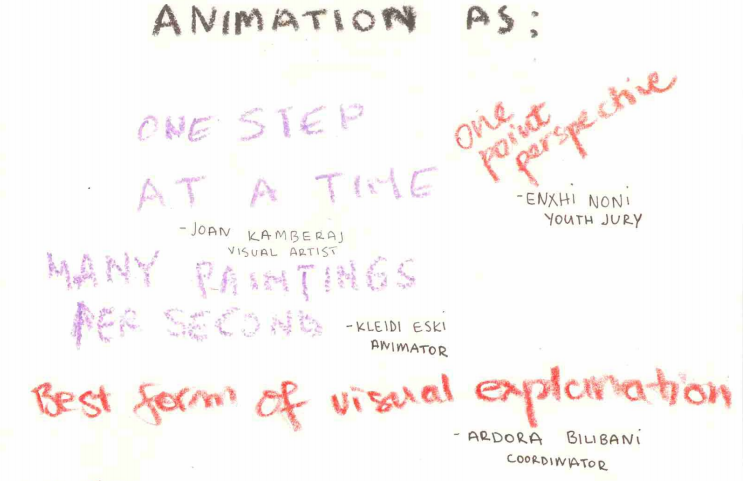 ANIMATION AS;
ONE STEP
AT A TIME
-JOAN KAMBERAJ
VISUAL ARTIST
one
point
perspective
-ENXHi NONi
YOUTH JURY
MANY PAINTINGS
PER SECOND
-KLEIDI ESKI
ANIMATOR
Best form of visual explanation
-ARDORA BILIBANi
COORDINATOR